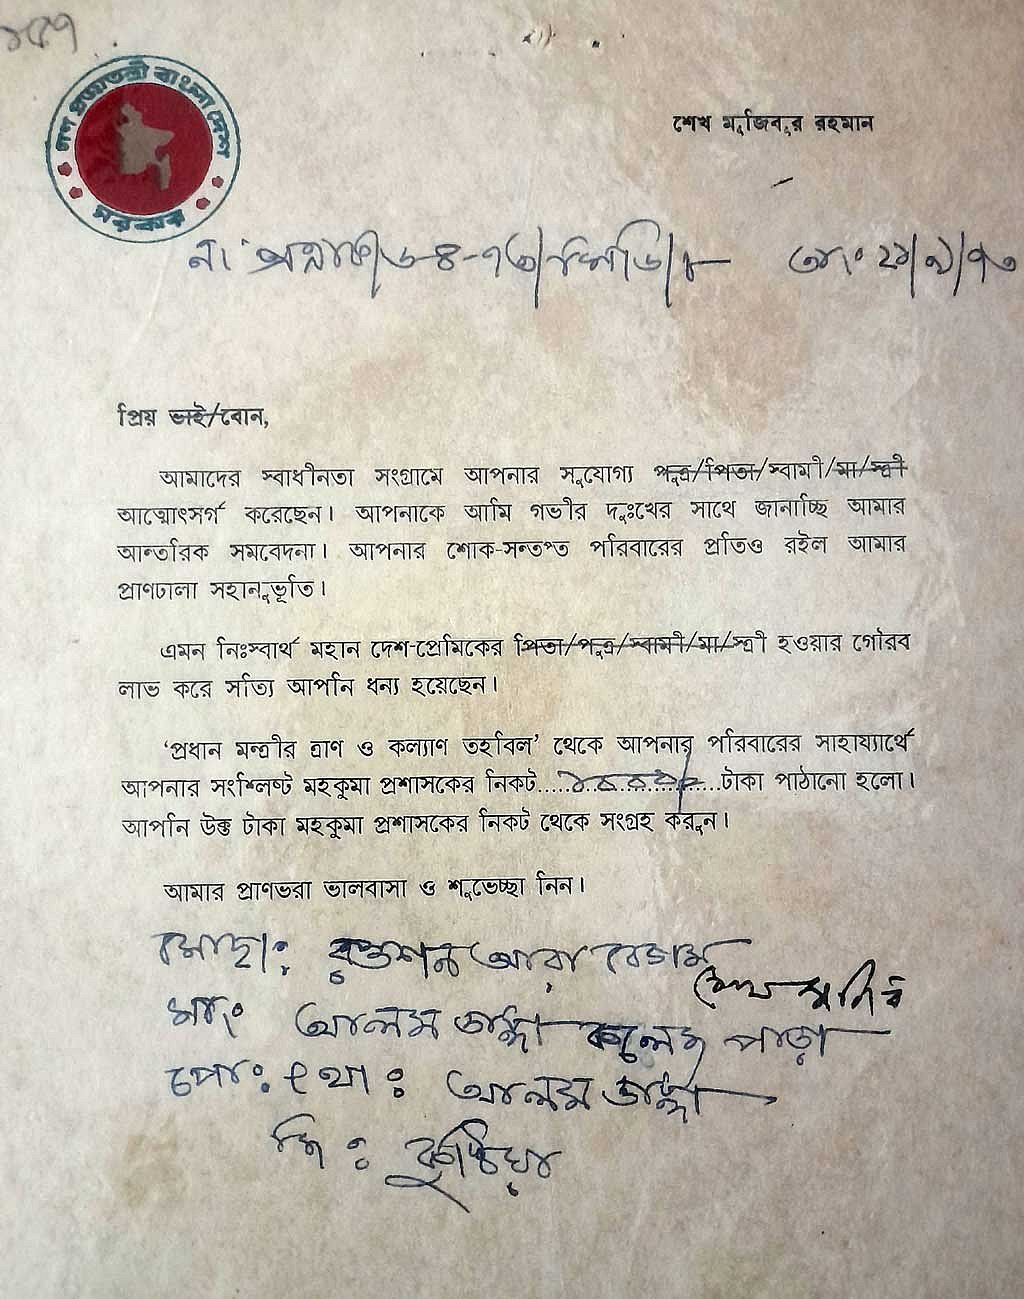 গণ প্রজাতন্ত্রী বাংলা দেশ
সরকার
শেখ মুজিবুর রহমান
তাং ২১/৯/৭৩
প্রিয় ভাই/বোন,
আমাদের স্বাধীনতা সংগ্রামে আপনার সুযোগ্য পুত্র/পিতা/স্বামী/মা/স্ত্রী
আত্মোৎসর্গ করেছেন। আপনাকে আমি গভীর দুঃখের সাথে জানাচ্ছি আমার
আন্তরিক সমবেদনা। আপনার শোক-সন্তপ্ত পরিবারের প্রতিও রইল আমার
প্রাণঢালা সহানুভূতি।
এমন নিঃস্বার্থ মহান দেশ-প্রেমিকের পিতা/পুত্র/স্বামী/মা/স্ত্রী হওয়ার গৌরব
লাভ করে সত্যি আপনি ধন্য হয়েছেন।
'প্রধান মন্ত্রীর ত্রাণ ও কল্যাণ তহবিল' থেকে আপনার পরিবারের সাহায্যার্থে
আপনার সংশ্লিষ্ট মহকুমা প্রশাসকের নিকট.............টাকা পাঠানো হলো।
আপনি উক্ত টাকা মহকুমা প্রশাসকের নিকট থেকে সংগ্রহ করুন।
আমার প্রাণভরা ভালবাসা ও শুভেচ্ছা নিন।
মোছা: রওশন আরা বেগম
শেখ মুজিব
আলম ডাঙ্গা কলেজ পাড়া
পো: ও থা: আলম ডাঙ্গা
জি: কুষ্টিয়া